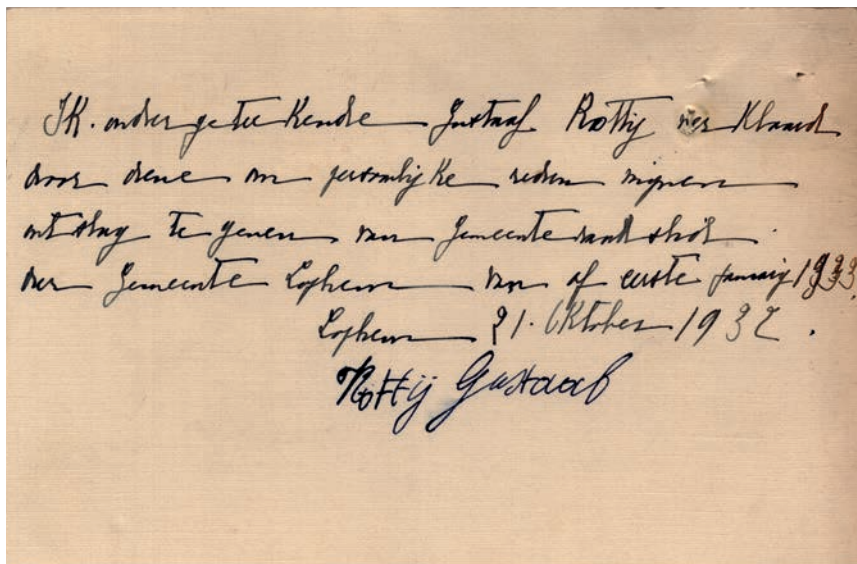 IK. ondergeteekende Gustaaf Rottij verklaard
door dene om persoonlijke reden mijnen
ontslag te geven van Gemeente
der Gemeente Lophem van af eerste januarij 1933.
Lophem 21. Oktober 1932.
Rottij Gustaaf